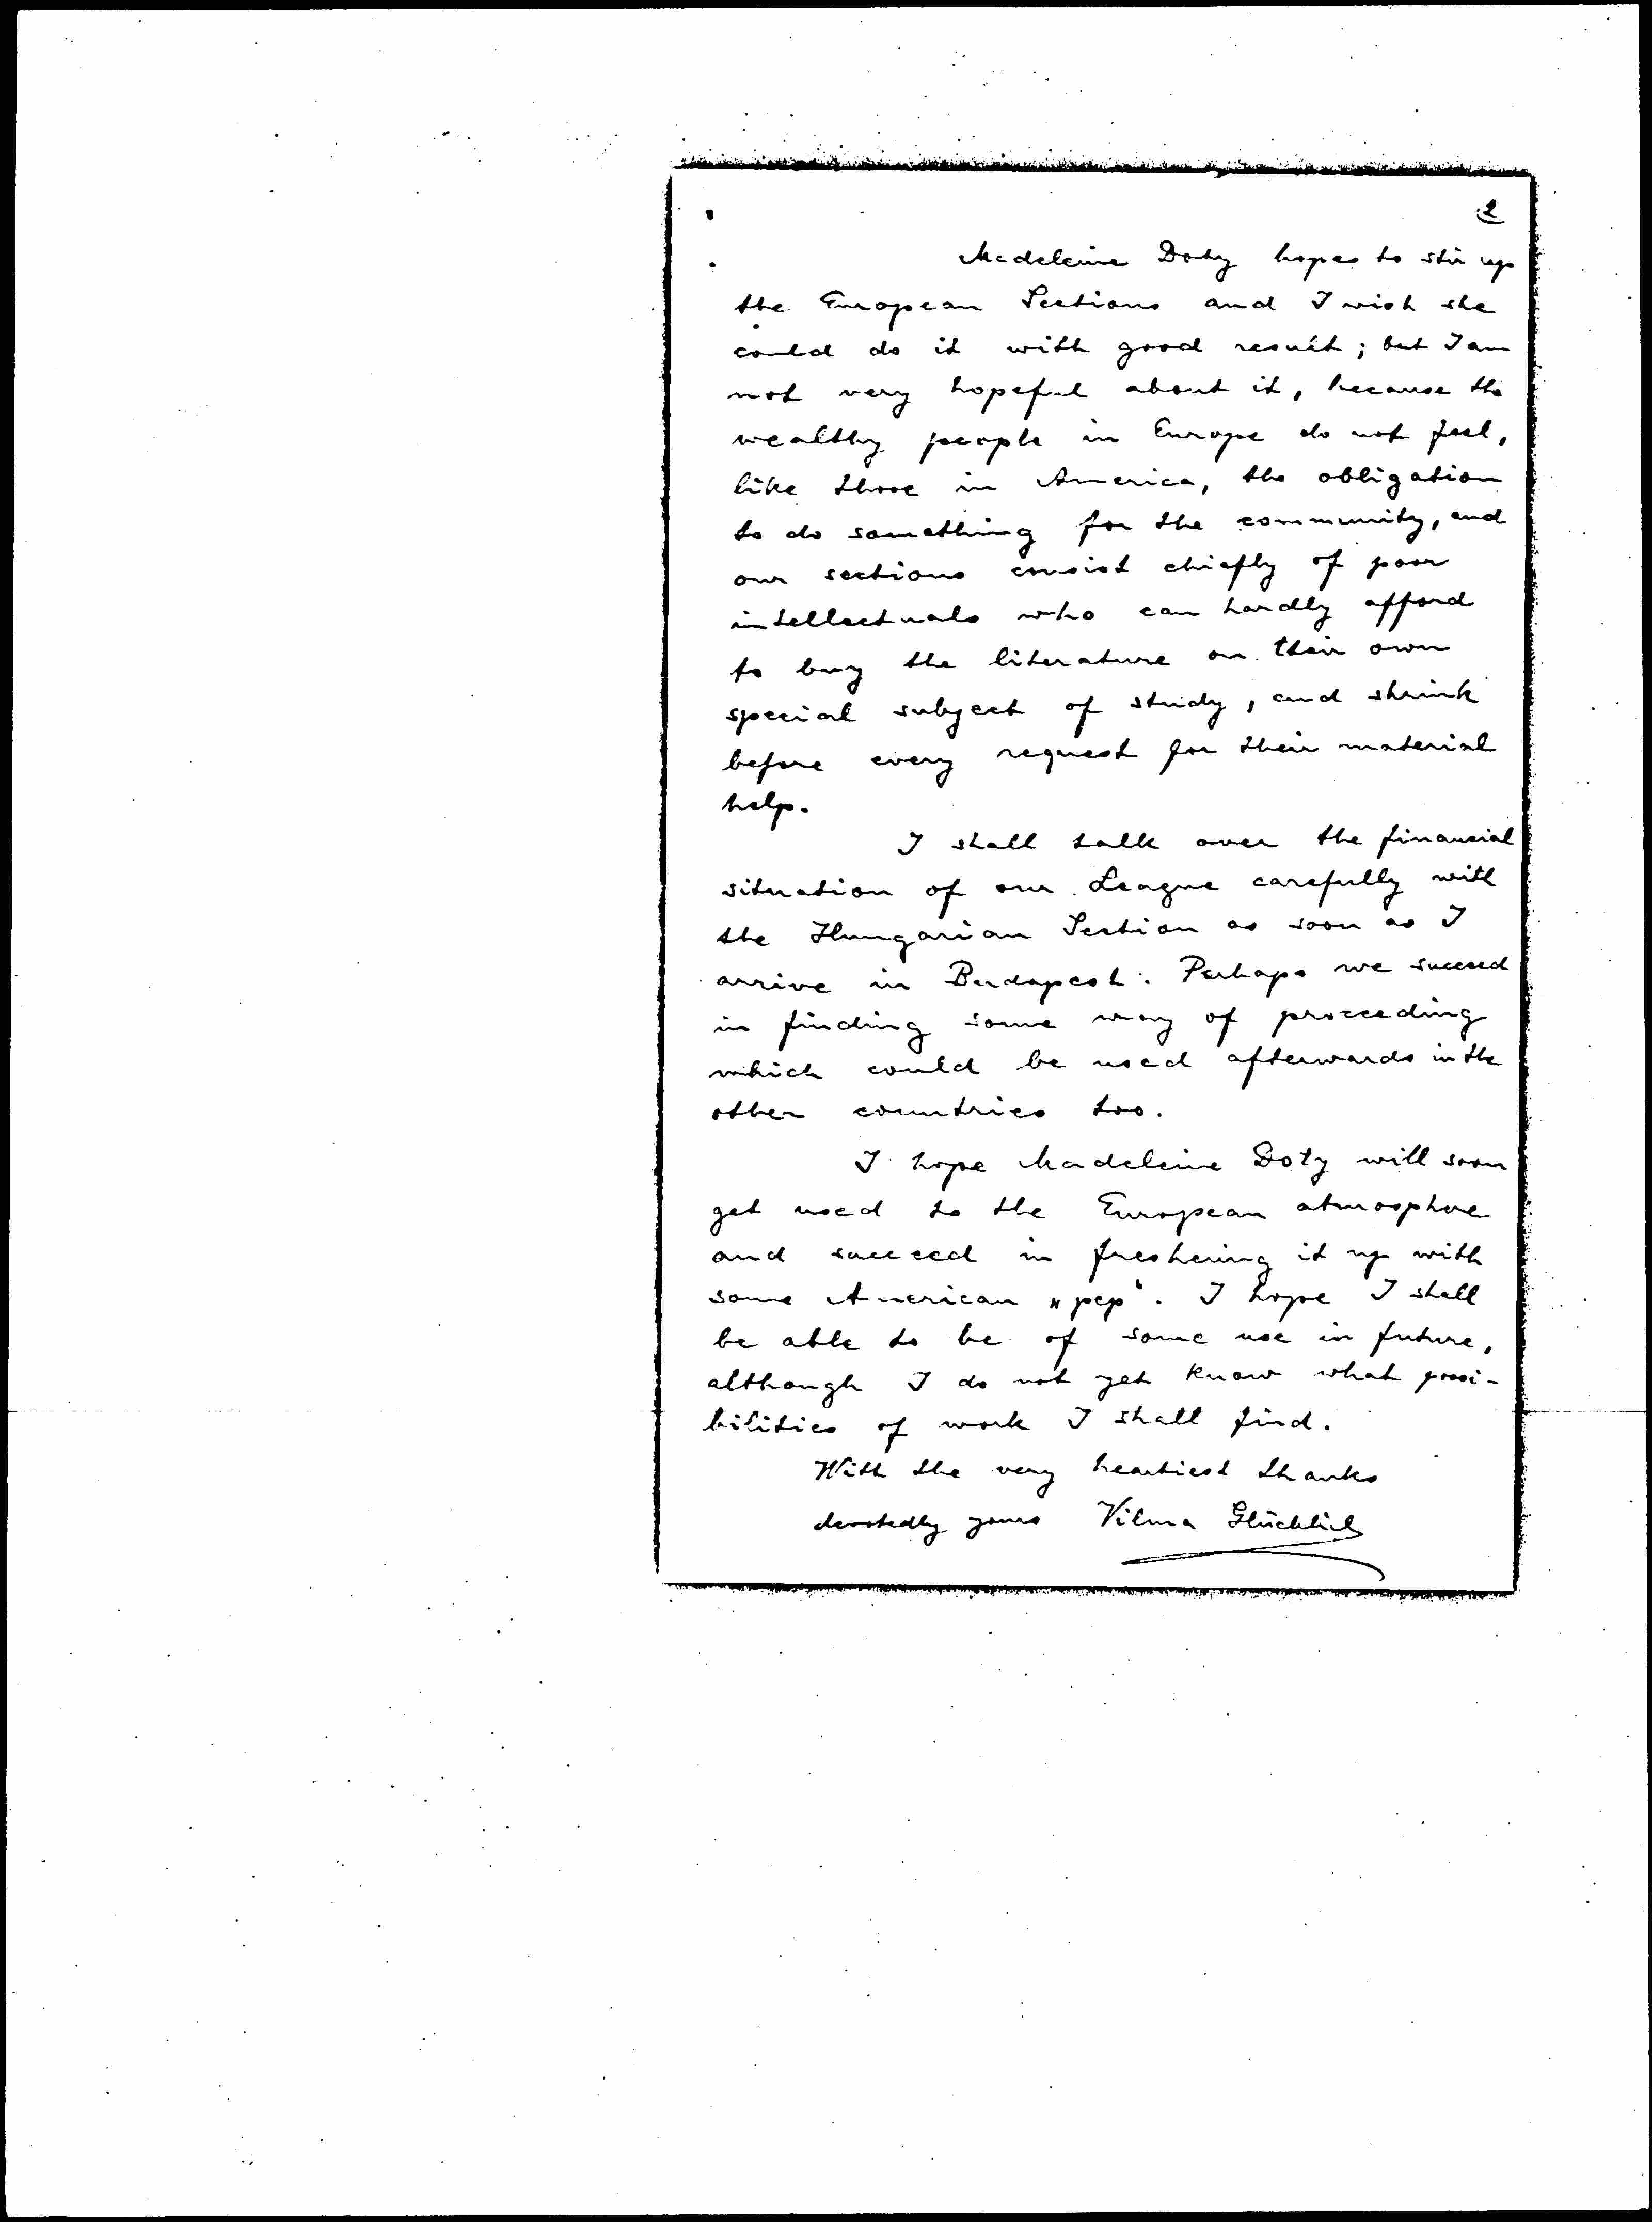 2
Madeleine Doty hopes to stir up
the European Sections and I wish she
could do it with good result; but I am
not very hopeful about it, because the
wealthy people in Europe do not feel,
like those in America, the obligation
to do something for the community, and
our sections consist chiefly of poor
intellectuals who can hardly afford
to buy the literature on their own
special subject of study, and shrink
before every request for their material
help.
I shall talk over the financial
situation of our League carefully with
the Hungarian Section as soon as I
arrive in Budapest. Perhaps we succeed
in finding some way of proceeding
which could be used afterwards in the
other countries too.
I hope Madeleine Doty will soon
get used to the European atmosphere
and succeed in freshening it up with
some American „pep“. I hope I shall
be able to be of some use in future,
although I do not yet know what possi-
bilities of work I shall find.
With the very heartiest thanks
devotedly yours Vilma Glücklich